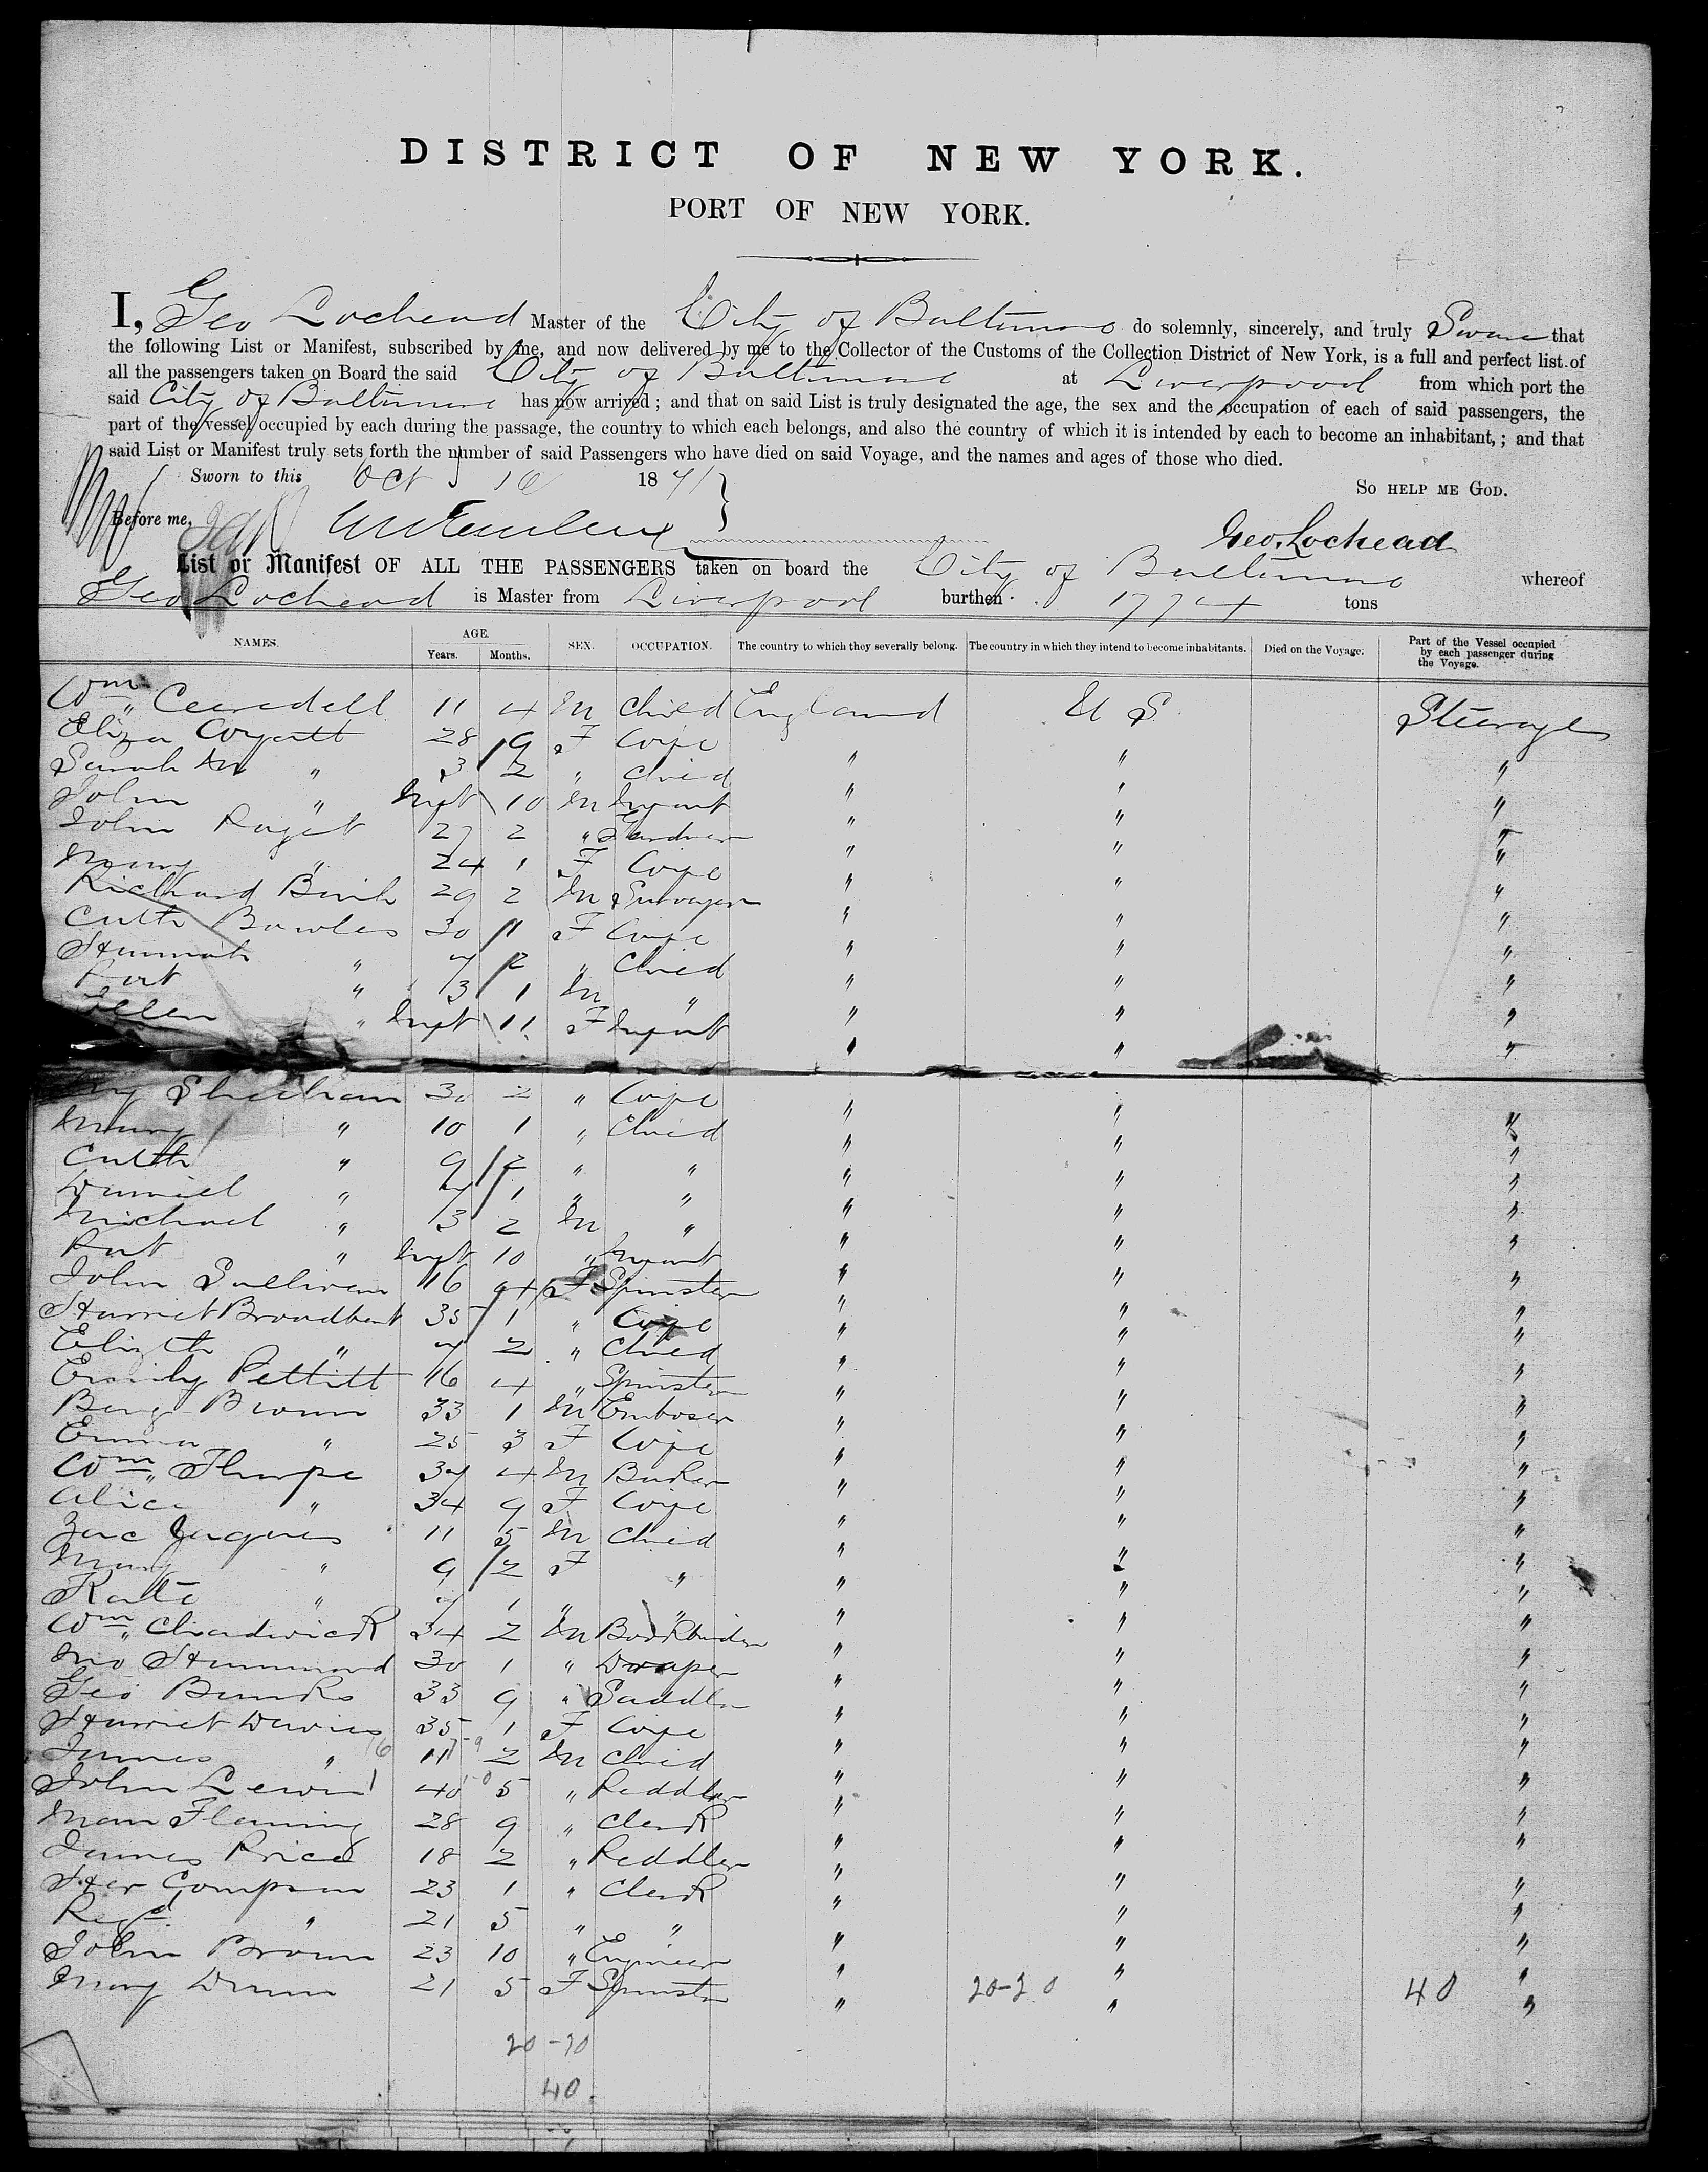 DISTRICT OF NEW YORK.
PORT OF NEW YORK.
I, Geo Lochead Master of the City of Baltimore do solemnly, sincerely, and truly Swear that
the following List or Manifest, subscribed by me, and now delivered by me to the Collector of the Customs of the Collection District of New York, is a full and perfect list of
all the passengers taken on Board the said City of Baltimore at Liverpool from which port the
said City of Baltimore has now arrived; and that on said List is truly designated the age, the sex and the occupation of each of said passengers, the
part of the vessel occupied by each during the passage, the country to which each belongs, and also the country of which it is intended by each to become an inhabitant,; and that
said List or Manifest truly sets forth the number of said Passengers who have died on said Voyage, and the names and ages of those who died.
Sworn to this Oct 16 1871 SO HELP ME GOD.
Before me, Geo. Lochead
List or Manifest OF ALL THE PASSENGERS taken on board the City of Baltimore whereof
Geo Lochead is Master from Liverpool burthen 1774 tons
NAMES. AGE. Years. Months. SEX. OCCUPATION. The country to which they severally belong. The country in which they intend to become inhabitants. Died on the Voyage. Part of the Vessel occupied by each passenger during the Voyage.
Wm 11 4 M Child England U S Steerage
Eliza Coyatt 28 9 F Wife " " "
Sarah An " 3 2 " Child " " "
John " Inft 10 M Infant " " "
John Paget 27 2 " Gardner " " "
Mary " 24 1 F Wife " " "
Richard 29 2 M " " "
Cath Bowles 30 11 F Wife " " "
Hannah " 7 2 " Child " " "
" 3 1 M " " " "
Ellen " Inft 11 F Infant " " "
Sheehan 30 2 " Wife " " "
Mary " 10 1 " Child " " "
Cath " 9 2 " " " " "
Daniel " 7 1 " " " " "
Michael " 3 2 M " " " "
Pat " Inft 10 " Infant " " "
John Sullivan 16 4 F Spinster " " "
Harriet Broadbent 35 1 " Wife " " "
Elizth " 7 2 " Child " " "
Emily Pettitt 16 4 " Spinster " " "
Benj Brown 33 1 M Embosser " " "
Emma " 25 3 F Wife " " "
Wm Tharpe 37 4 M Baker " " "
Alice " 34 9 F Wife " " "
Jaques 11 5 M Child " " "
Mary " 9 2 F " " " "
Kate " 7 1 " " " " "
Wm Chadwick 34 2 M Bookbinder " " "
Hammond 30 1 " Draper " " "
Geo Banks 33 9 " Saddler " " "
Harriet Davies 35 1 F Wife " " "
James " 11 2 M Child " " "
John Lewis 40 5 " Peddler " " "
Flaming 28 9 " Clerk " " "
James Price 18 2 " Peddler " " "
Compson 23 1 " Clerk " " "
Regd " 21 5 " " " " "
John Brown 23 10 " Engineer " " "
Mary Dunn 21 5 F Spinster " 20-20 " 40 "
20-20
40